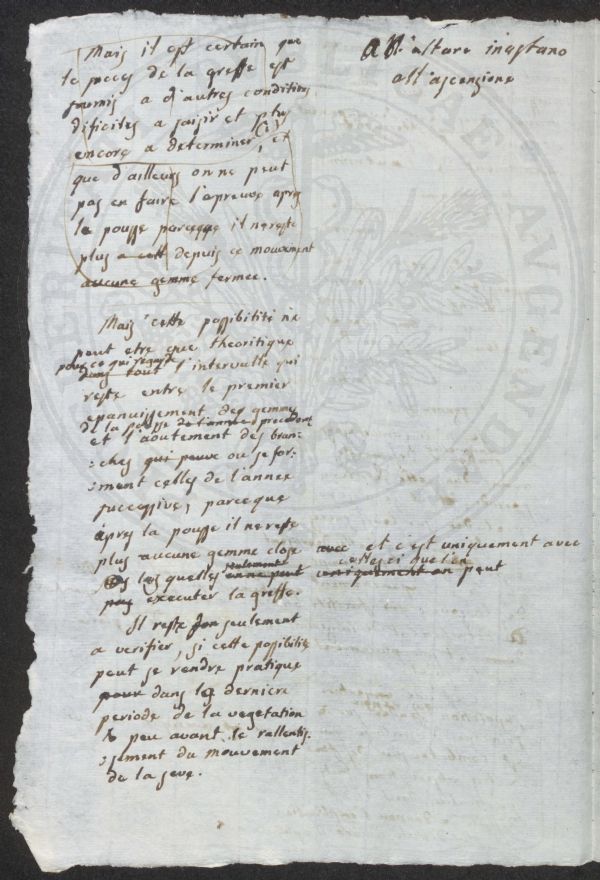 Mais il est certain que
le pocces de la greffe est
soumis a d'autres conditions
dificiles a saisir et plus
encore a determiner (1), et
que d'ailleurs on ne peut
pas en faire l'epreuve apres
la pousse parceque il ne reste
plus a cett depuis ce mouvement
aucune gemme fermee.
Mais cette possibilité ne
peut etre que theoritique
pour ce qui regarde
dans tout l'intervalle qui
reste entre le premier
epanuissement des gemmes
de la pousse de l'annee precedente
et l'aoutement des bran-
:ches qui peux ou se for-
:ment celles de l'annee
successive, parceque
apres la pousse il ne reste
plus aucune gemme close avec et c'est uniquement avec
les quelles seulement on ne peut celles ci que l'on
uniquement on peut
pas executer la greffe.
Il reste donc seulement
a verifier, si cette possibilité
peut se rendre pratique
pour dans la derniere
periode de la vegetation
& peu avant le rallentis-
:sement du mouvement
de la seve.
All'altare inastano
all'ascenzione